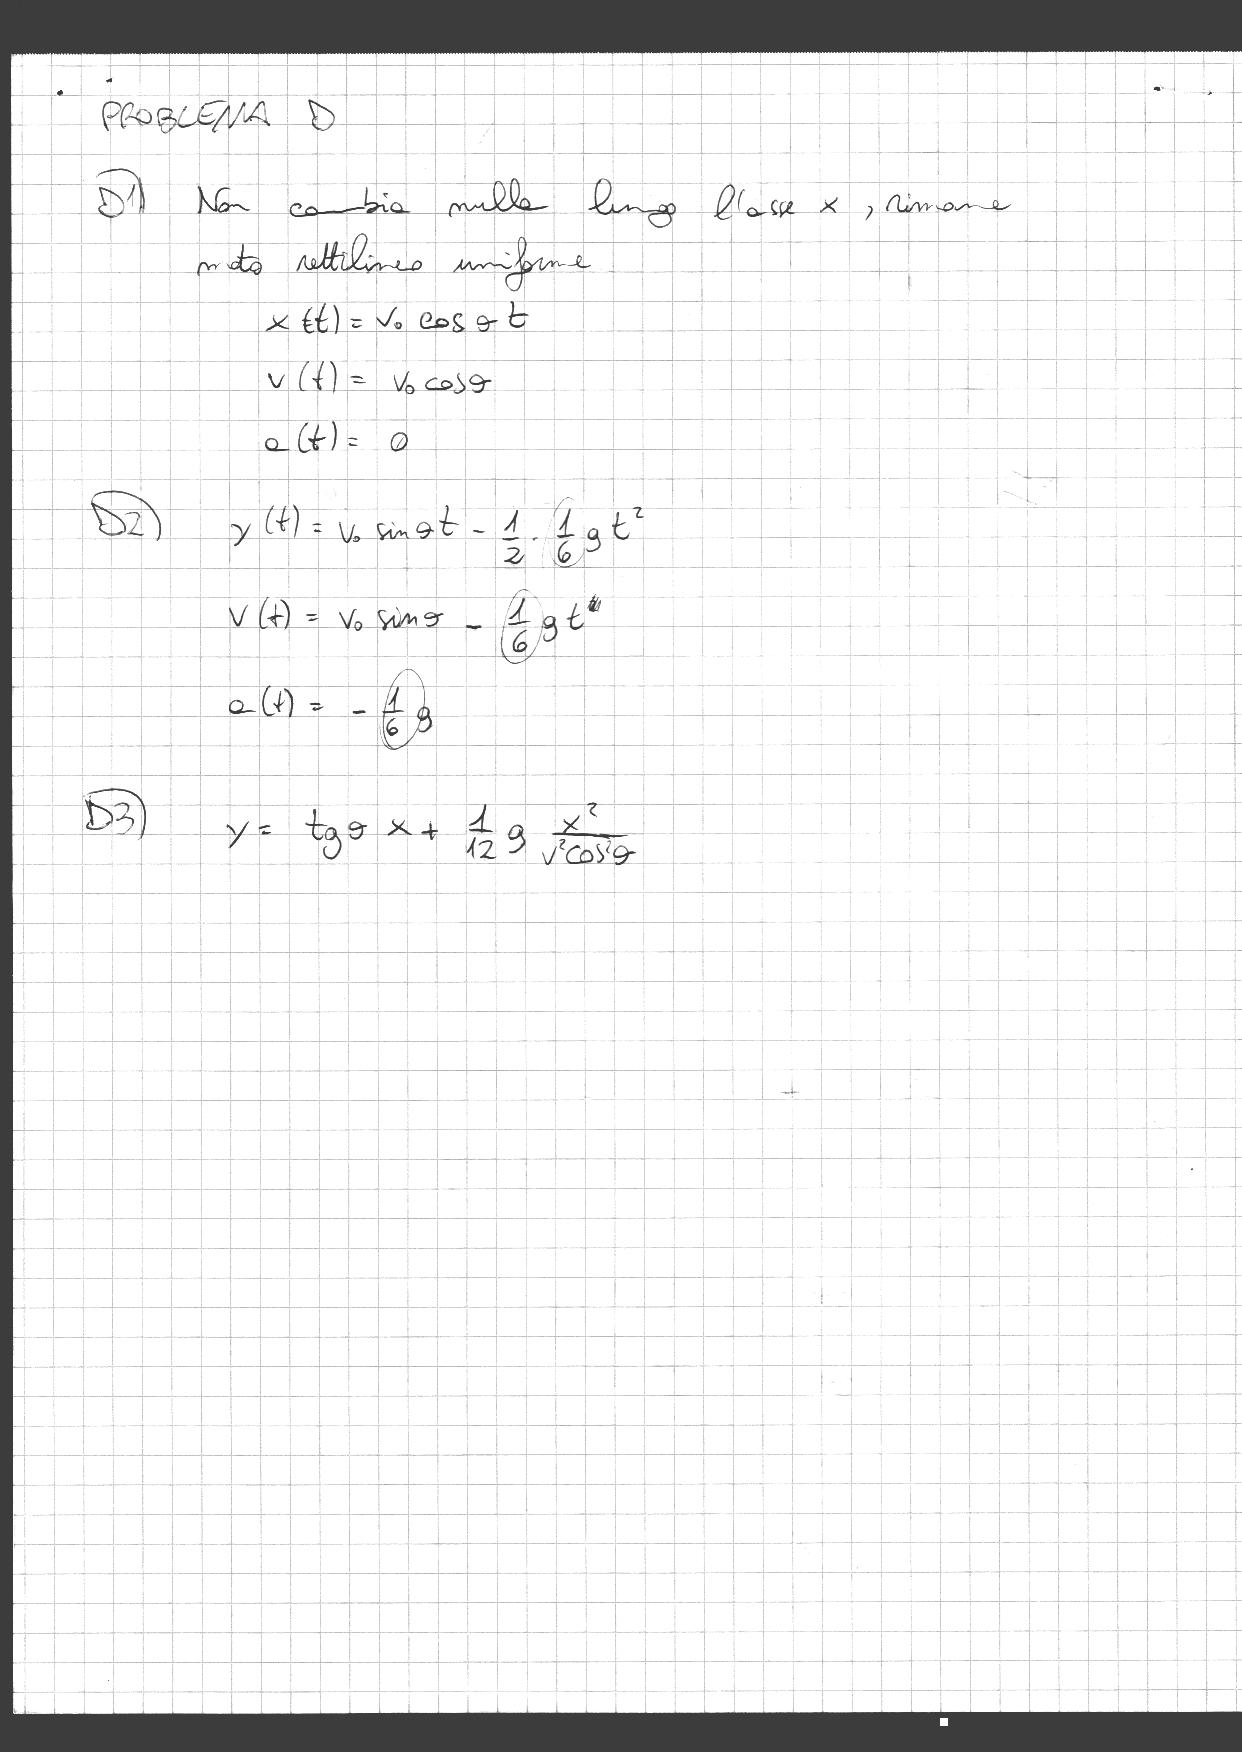 PROBLEMA D
D1) Non cambia nulla lungo l'asse x, rimane
moto rettilineo uniforme
x(t) = v₀ cos θ t
v(t) = v₀ cos θ
a(t) = 0
D2) y(t) = v₀ sin θ t - 1/2 · 1/6 g t²
v(t) = v₀ sin θ - 1/6 g t
a(t) = - 1/6 g
D3) y = tg θ x + 1/12 g x²/v²cos²θ